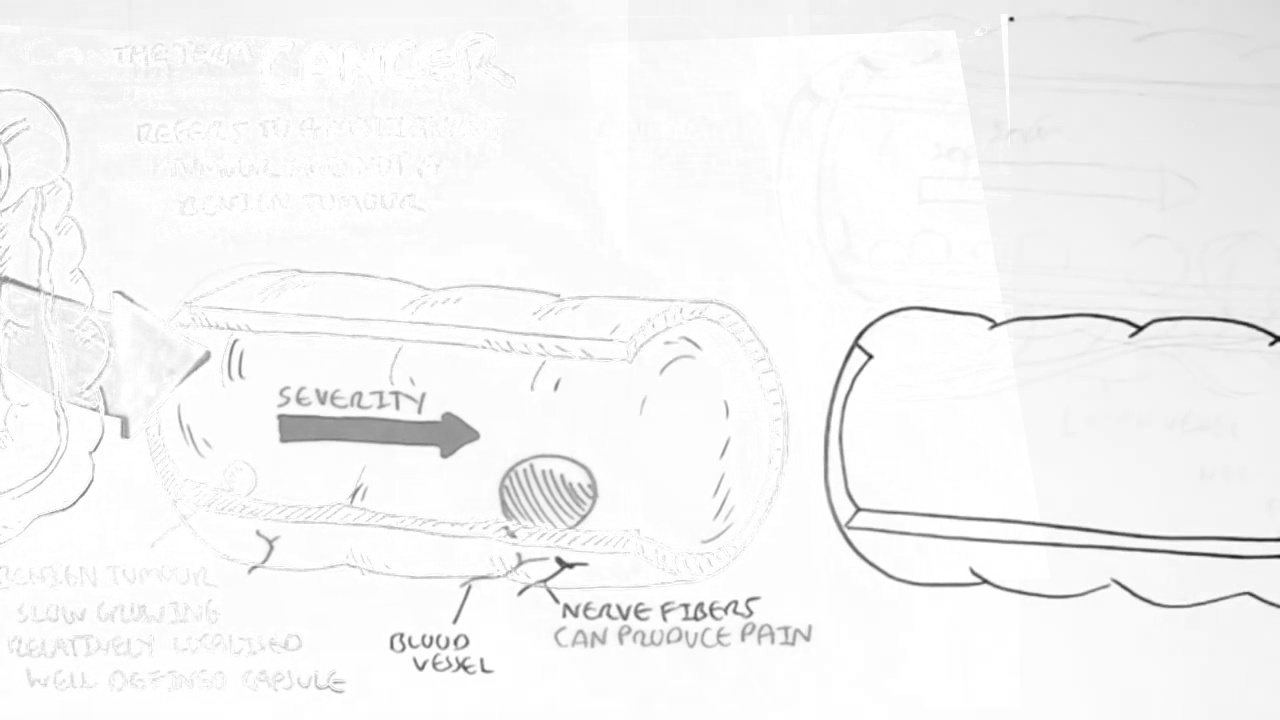 THE TERM CANCER
REFERS TO A MALIGNANT
TUMOUR AND NOT A
BENIGN TUMOUR
SEVERITY
BENIGN TUMOUR
SLOW GROWING
RELATIVELY LOCALISED
WELL DEFINED CAPSULE
BLOOD
VESSEL
NERVE FIBERS
CAN PRODUCE PAIN